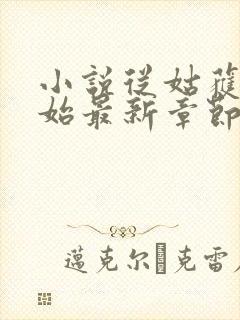 小說從姑獲
始最新章節
邁克尔 克雷